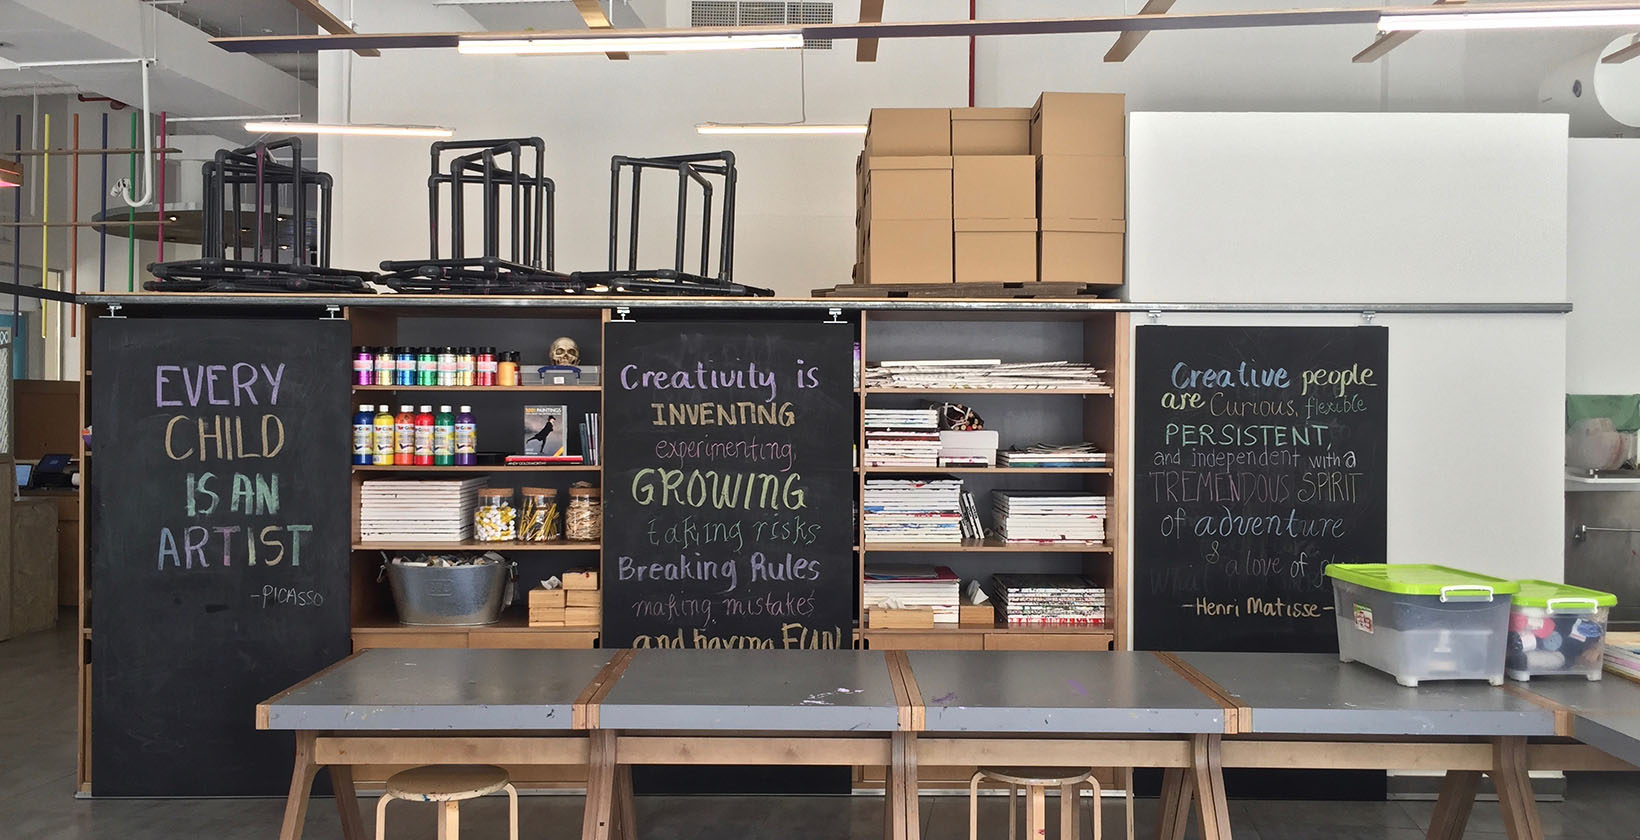 EVERY
CHILD
IS AN
ARTIST
-PICASSO
Creativity is
INVENTING
experimenting,
GROWING
taking risks
Breaking Rules
making mistakes
and having FUN!
Creative people
are Curious, flexible
PERSISTENT,
and independent with a
TREMENDOUS SPIRIT
of adventure
& a love of
-Henri Matisse-
ANDY GOLDSWORTHY